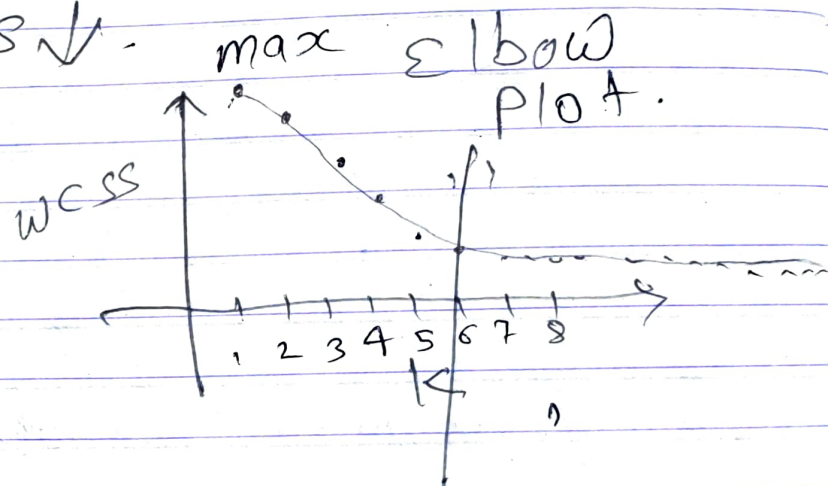 S ↓.
max Elbow
Plot.
WCSS
1 2 3 4 5 6 7 8
K